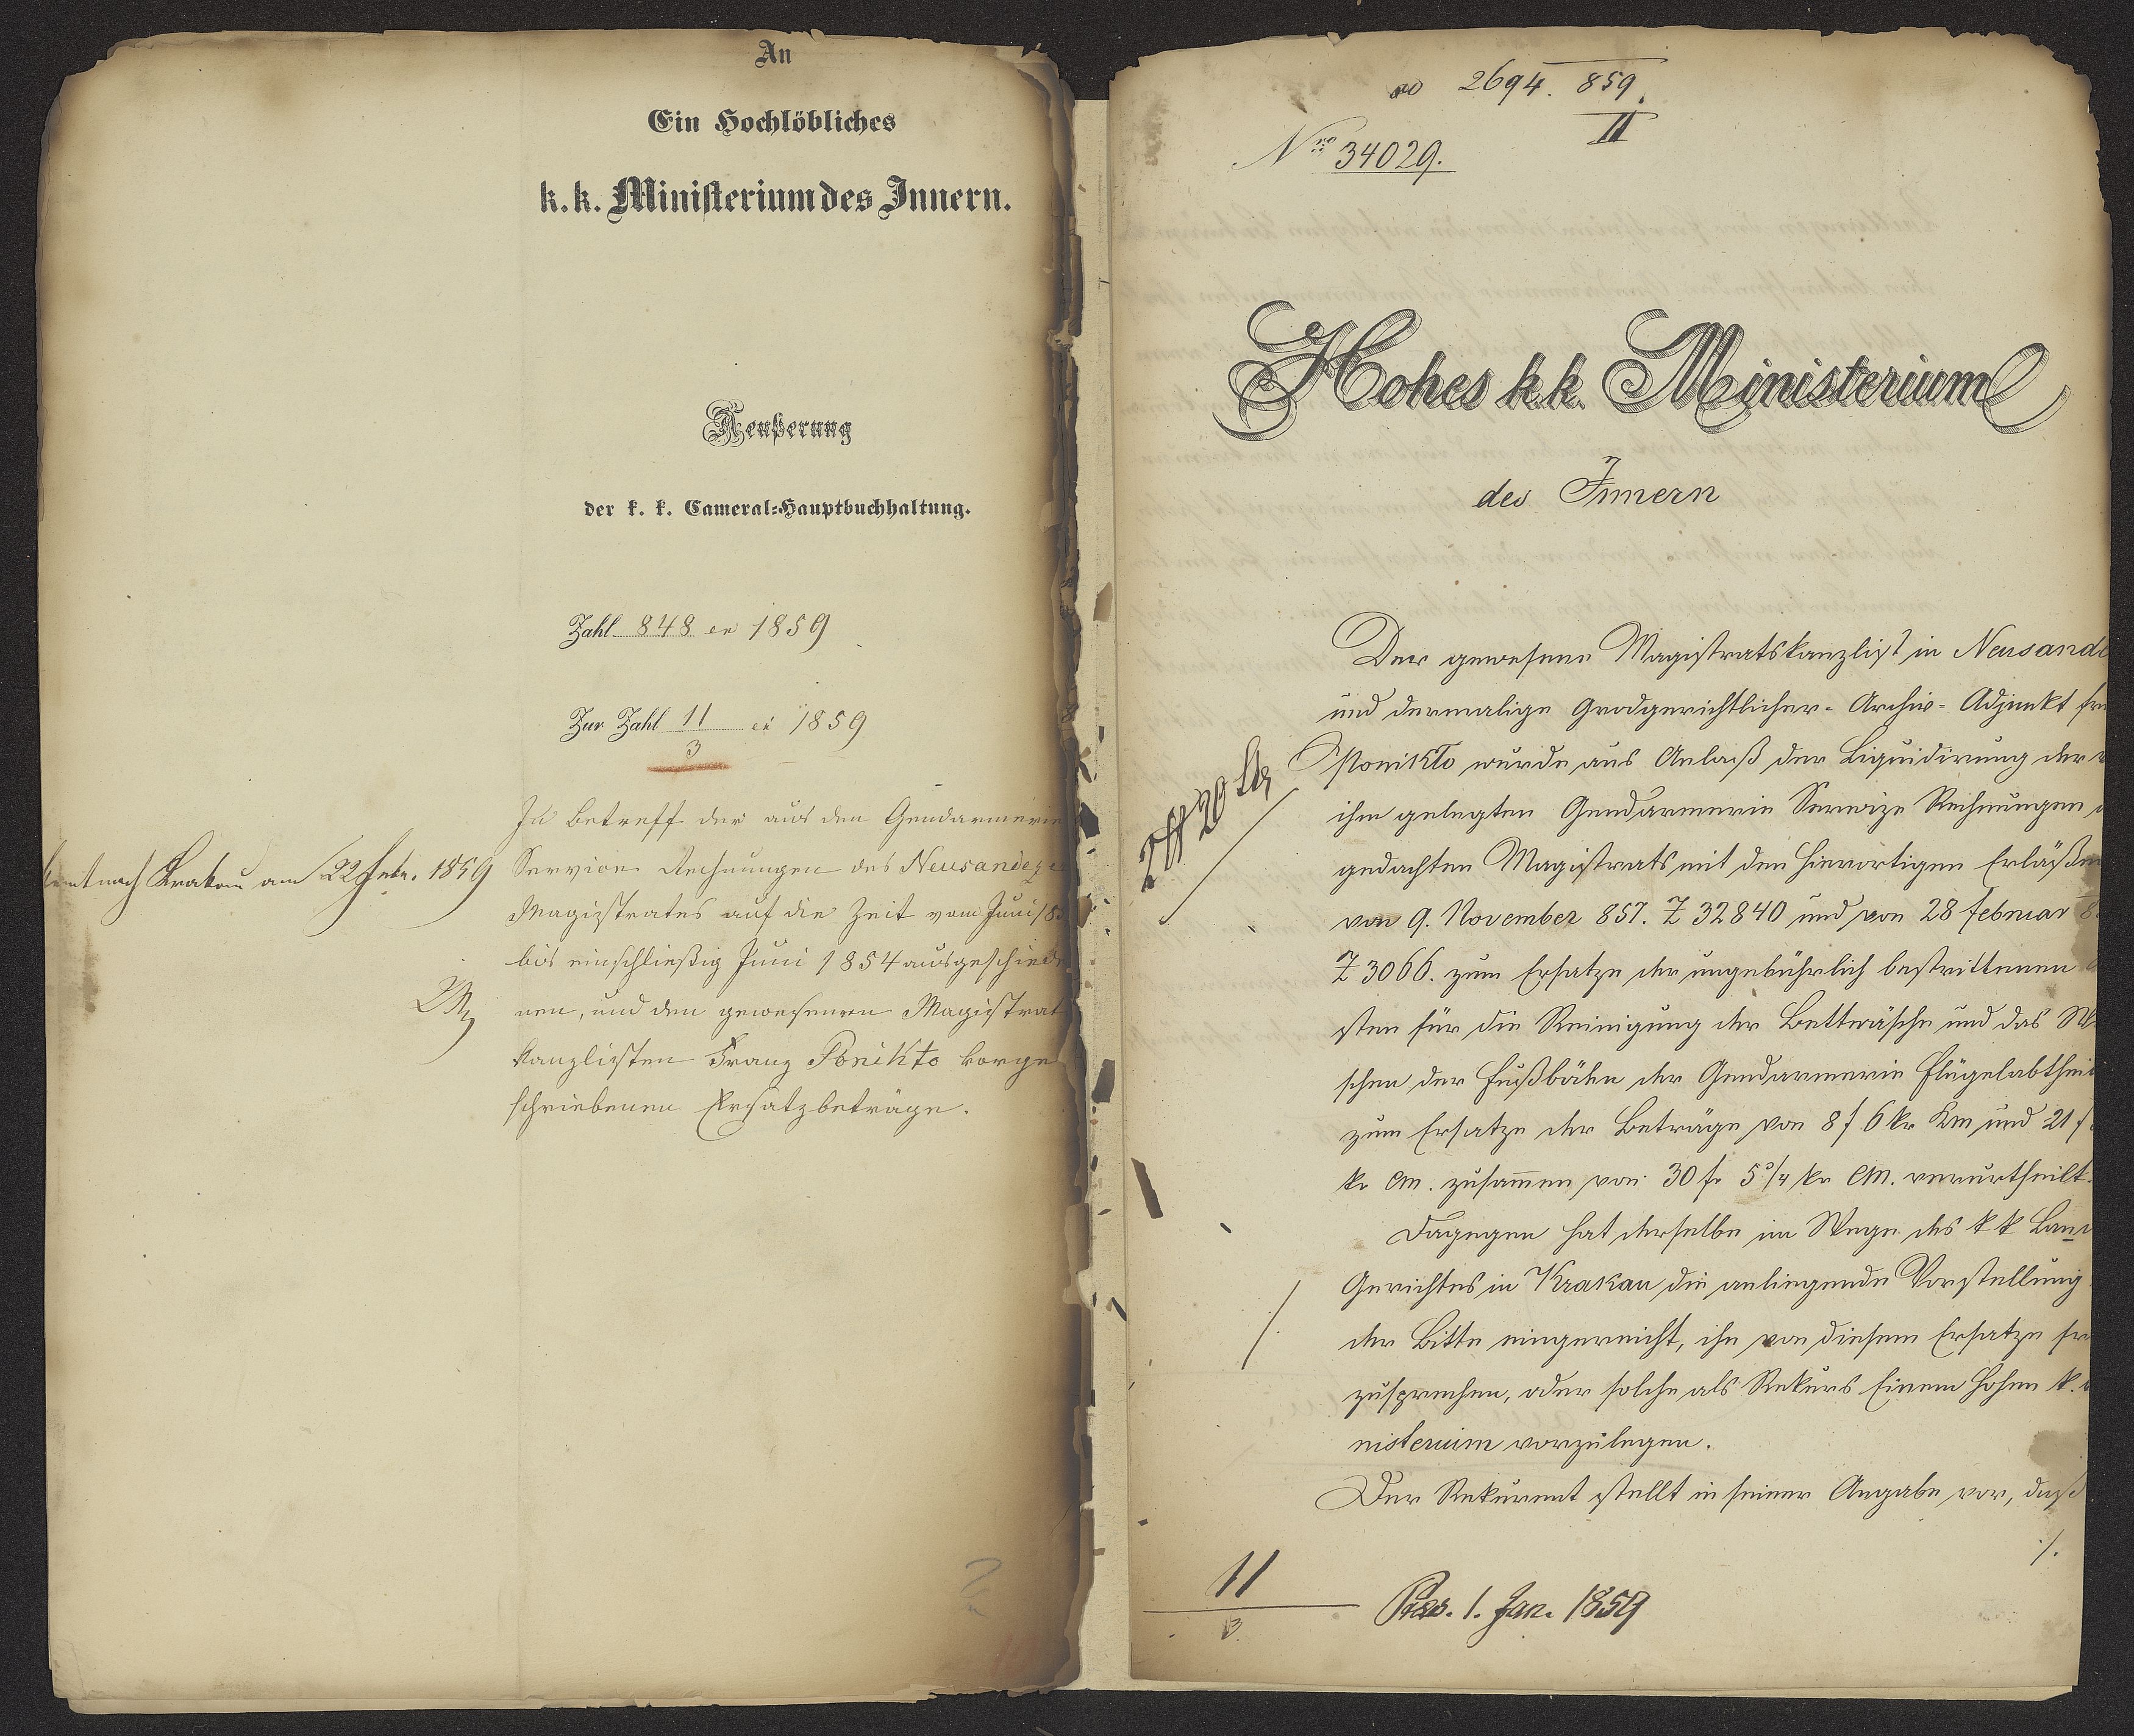 An
Ein Hochlöbliches
k. k. Ministerium des Innern.
Aeußerung
der k. k. Cameral-Hauptbuchhaltung.
Zahl 848 ex 1859
Zur Zahl 11 ex 1859
3
nach Krakau am 22 Febr. 1859
In Betreff der aus den Gendarmerie
Service Rechnungen des Neusandeze
Magistrates auf die Zeit vom Juni 185
bis einschließig Juni 1854 ausgeschiede
nen, und den gewesenen Magistrat
kanzlisten Franz Ponikto vorge
schriebenen Ersatzbeträge.
ad 2694. 859
II
Nro 34029.
Hohes k.k. Ministerium
des Innern
Der gewesene Magistratskanzlist in Neusande
und dermalige Grodgerichtlicher-Archiv-Adjunkt Fra
Ponikto wurde aus Anlaß der Liquidirung der v
ihm gelegten Gendarmerie Servize Rechnungen d
gedachten Magistrats mit den hierortigen Erläßen
von 9. November 857. Z 32840 und von 28 Februar 8
Z 3066. zum Ersatze der ungebührlich bestrittenen
sten für die Reinigung der Bettwäsche und das Wa
schen der Fußböden der Gendarmerie Flügelabthei
zum Ersatze der Beträge von 8 f 6 kr Km und 21 f
kr CM. zusammen von 30 fr 5 3/4 kr CM. verurtheilt.
Dagegen hat derselbe im Wege des k k Land
Gerichtes in Krakau die anliegende Vorstellung
der Bitte eingereicht, ihn von diesem Ersatze frei
zusprechen, oder solche als Rekurs Einem hohen k.
nisterium vorzulegen.
Der Rekurent stellt in seiner Angabe vor, daß
./.
11
3.
Präs. 1. Jan. 1859